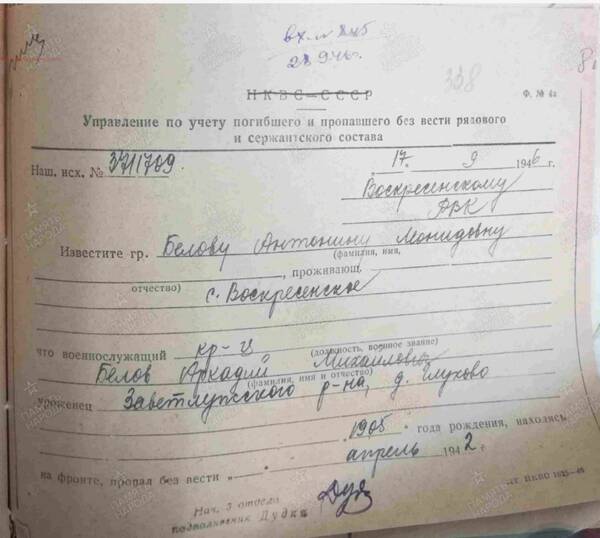 вх. №
28 9 46 г.
338
НКВС—СССР
Ф. № 4а
Управление по учету погибшего и пропавшего без вести рядового
и сержантского состава
Наш. исх. № 3711709
„ 17. 9 1946 г.
Воскресенскому
РВК
Известите гр. Белову Антонину
(фамилия, имя,
отчество) , проживающ.
с. Воскресенское
что военнослужащий кр-ц
(должность, военное звание)
Белов Аркадий Михайлович
(фамилия, имя и отчество)
уроженец Заветлужского р-на, д. Глухово
1905 года рождения, находясь
на фронте, пропал без вести „ апрель 1942 г.
Нач. 3 отдела
подполковник Дудка
ПАМЯТЬ НАРОДА